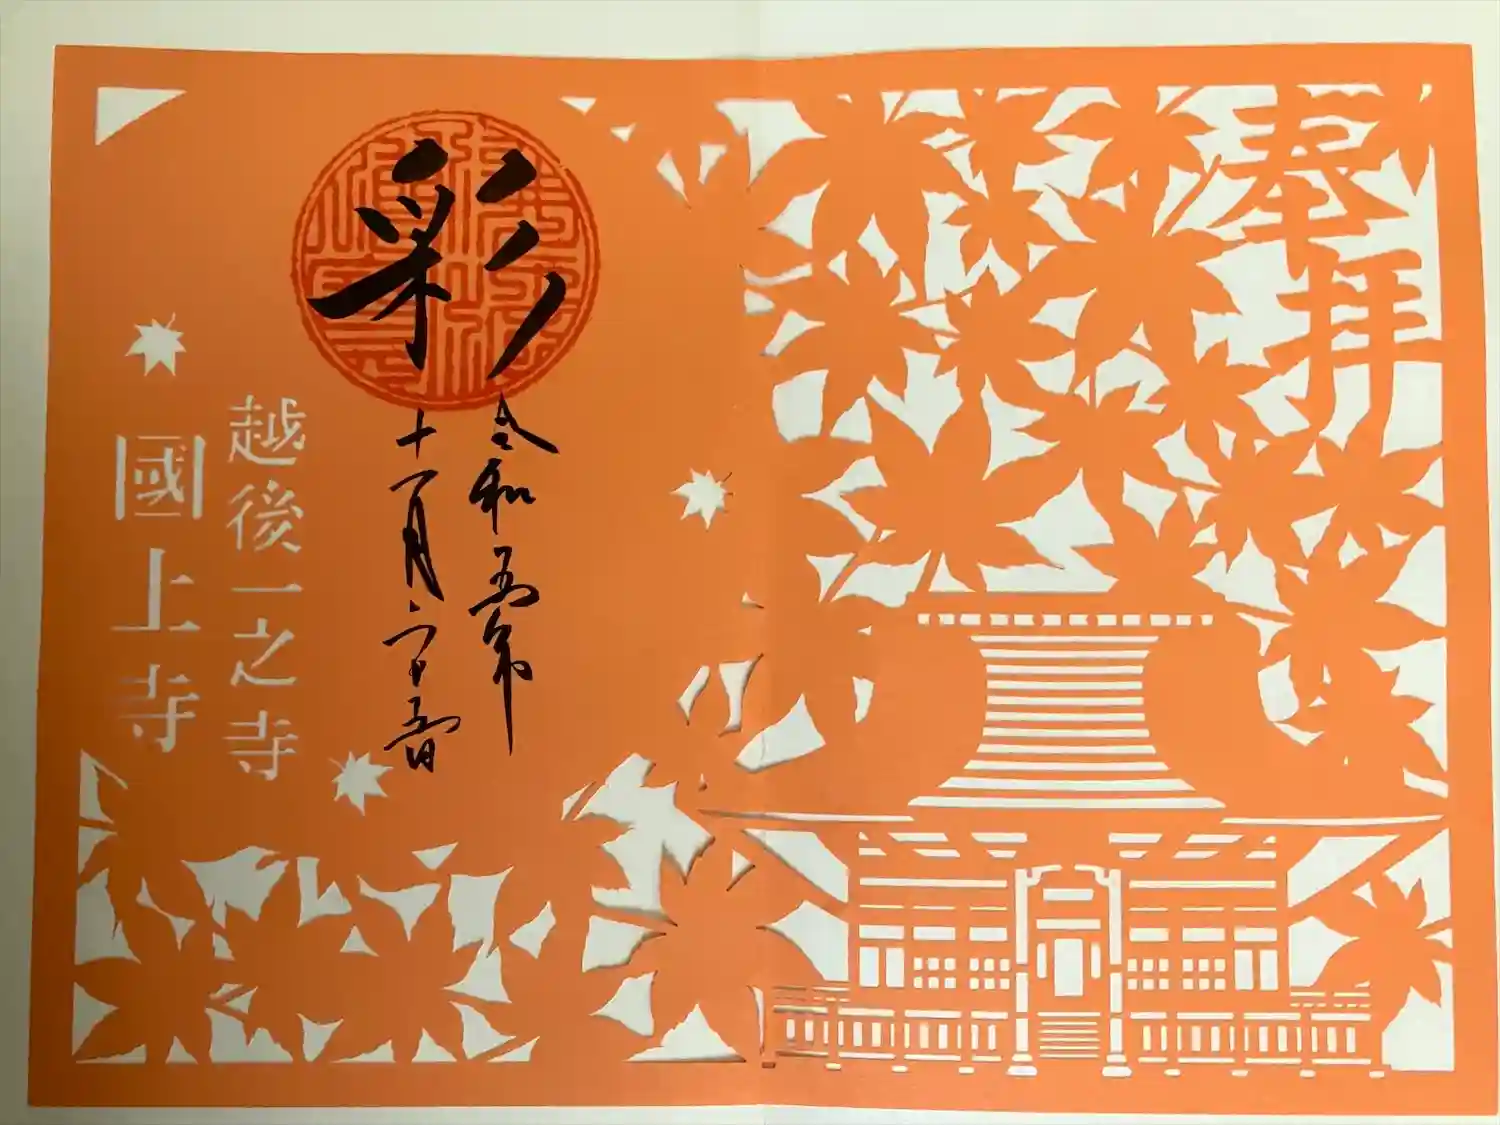 奉拝
彩
令和五年
十一月二十五日
越後一之寺
國上寺